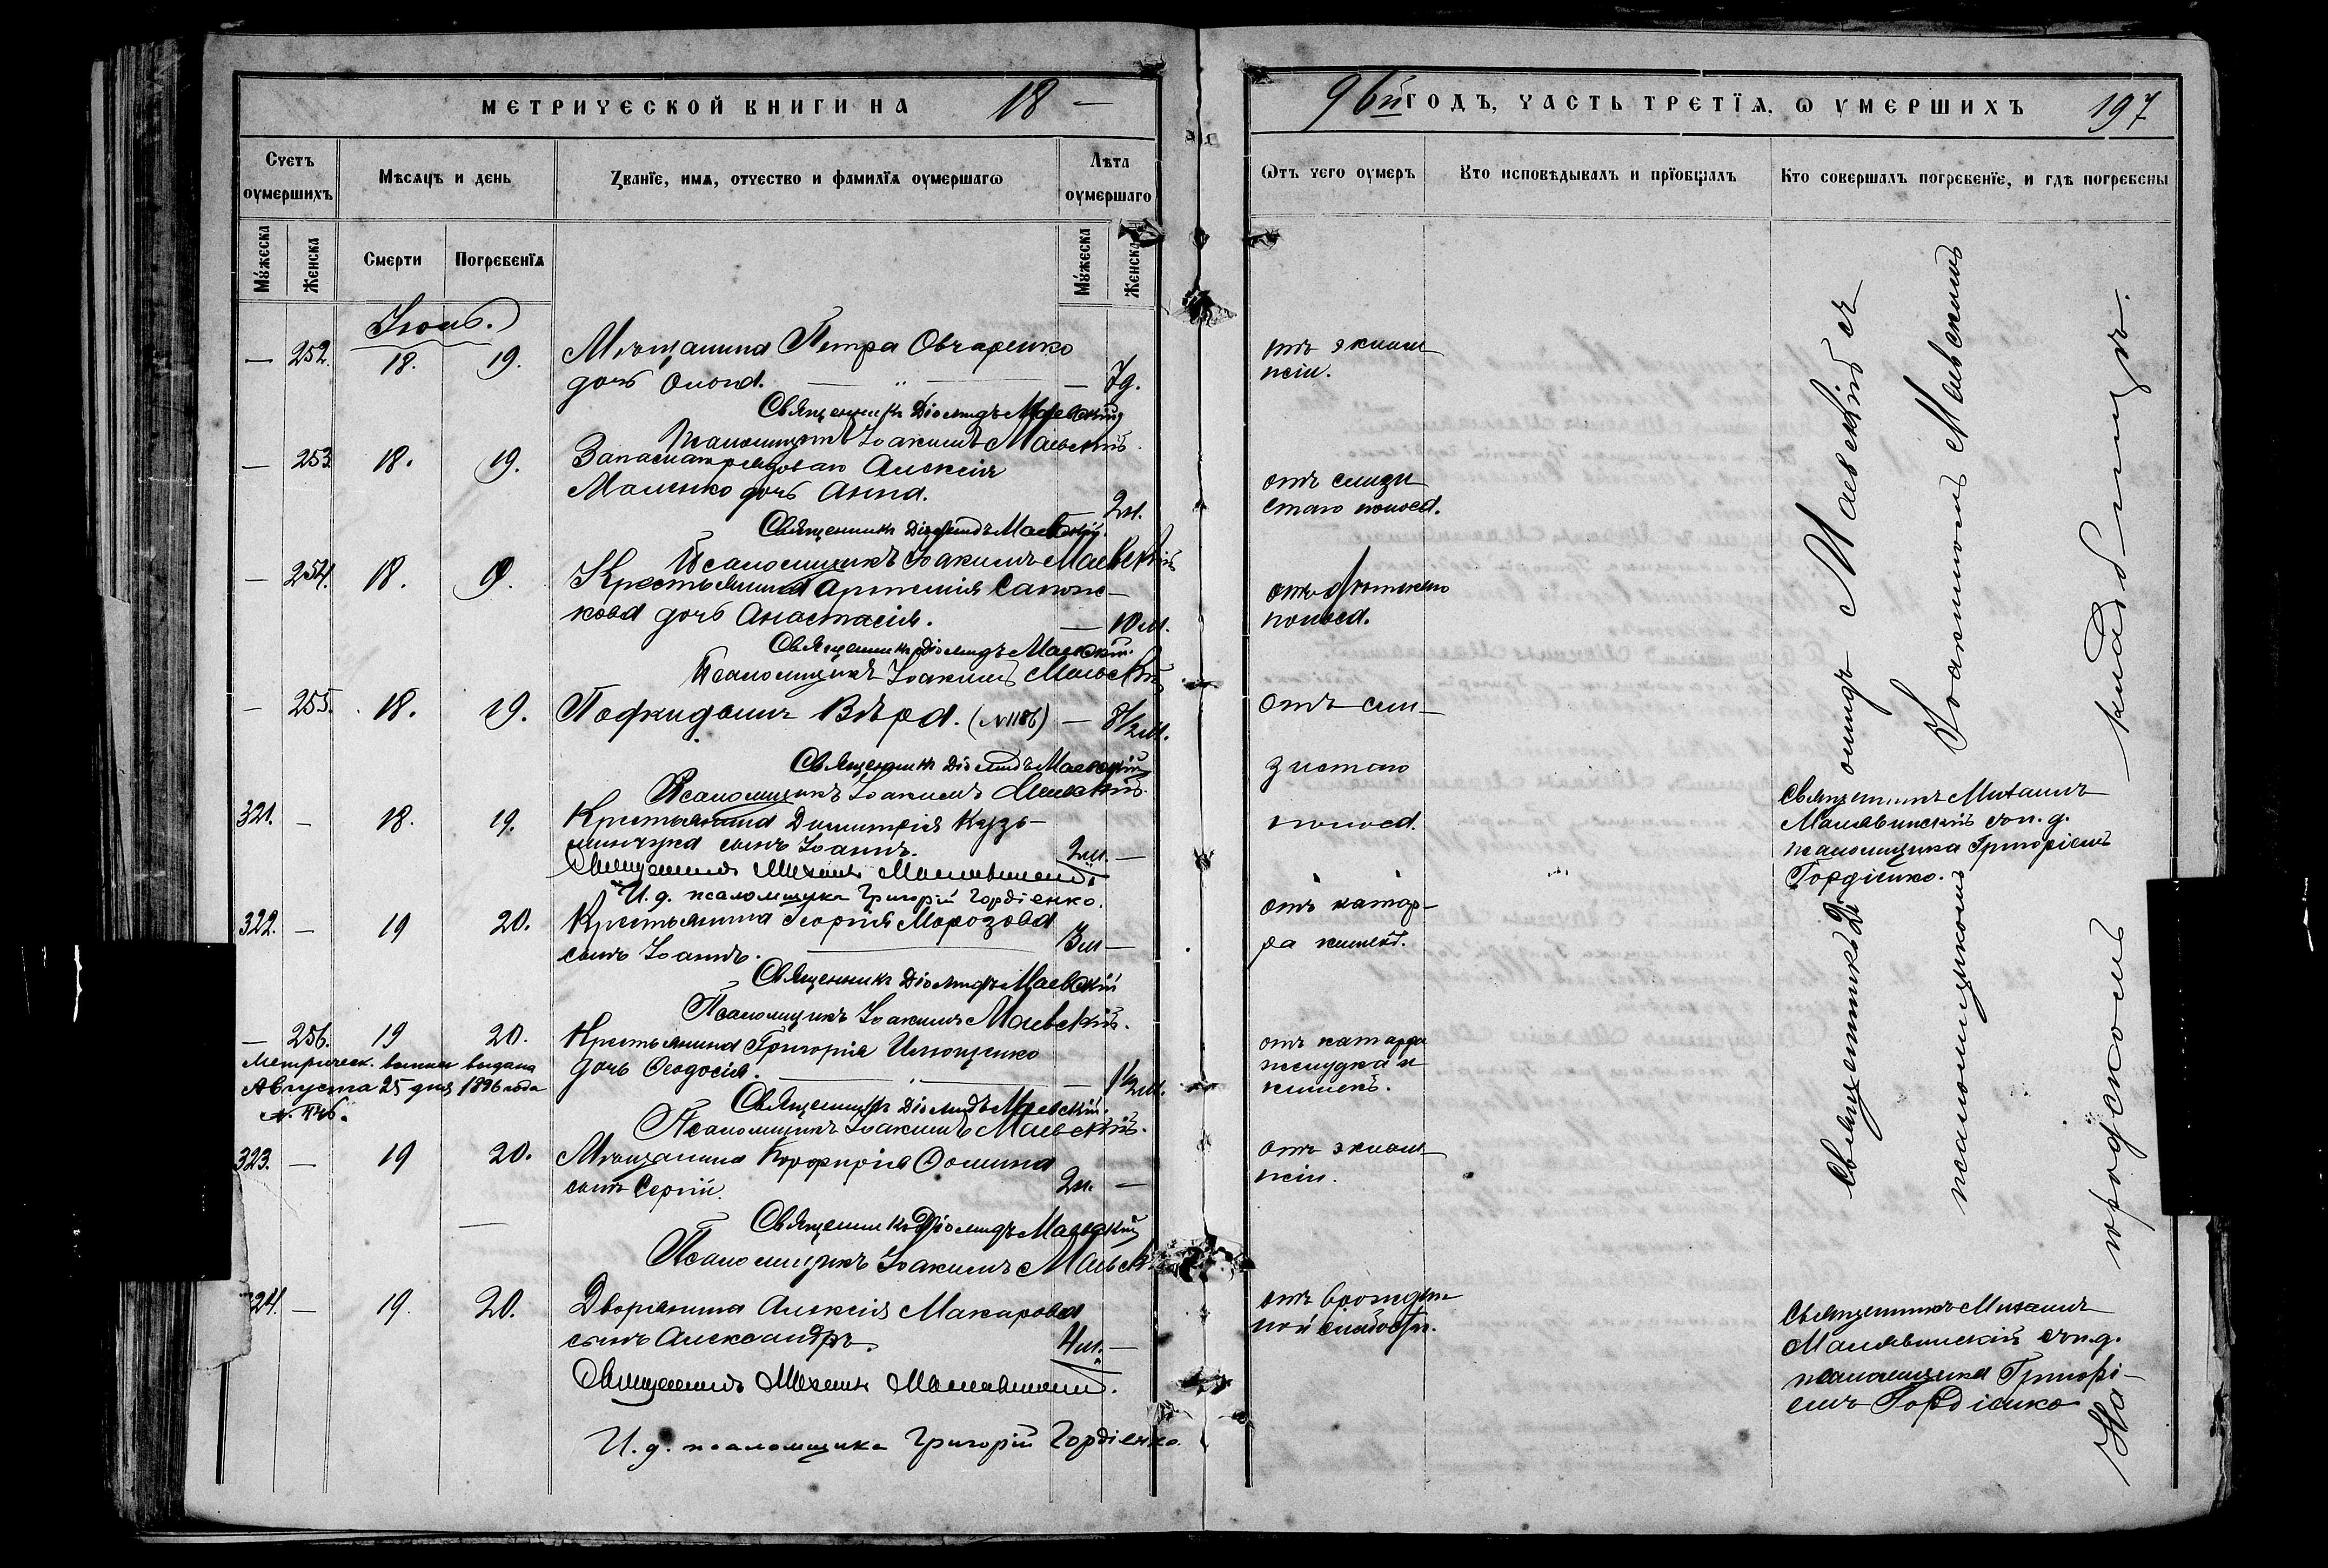 МЕТРИЧЕСКОЙ КНИГИ НА 18 —
Счетъ оумершихъ
Мѣсяцъ и день
Званїе, имя, отчество и фамилїя оумершагѡ
Лѣта оумершаго
Мужеска
Женска
Смерти
Погребенїя
Мужеска
Женска
— 252. 18. 19. Мѣщанина Петра Овчаренко
дочь — 7 д.
Священникъ Діомидъ Маевскій
Псаломщикъ Іоакимъ Маевскій.
— 253 18. 19. Алексія
дочь Анна. 2 м.
Священникъ Діомидъ Маевскій.
Псаломщикъ Іоакимъ Маевскій
— 254. 18. 19. Крестьянина Артемія
кова дочь Анастасія. — 10 м.
Священникъ Діомидъ Маевскій.
Псаломщикъ Іоакимъ Маевскій
— 255. 18. 19. Подкидышъ Вѣра. (№1186) — 8½ м.
Священникъ Діомидъ Маевскій
Псаломщикъ Іоакимъ Маевскій.
321. — 18. 19. Крестьянина Димитрія Кузь-
минчука сынъ Іоаннъ. 2 м. —
Священникъ Михаилъ
И. д. псаломщика Григорій Гордіенко.
322. — 19 20. Крестьянина Георгія Морозова
сынъ Іоаннъ. 3 м —
Священникъ Діомидъ Маевскій
Псаломщикъ Іоакимъ Маевскій.
— 256. 19 20. Крестьянина Григорія Ильющенко
дочь Ѳеодосія. — 1½ м.
Метрическ. выпись выдана
Августа 25 дня 1896 года
Священникъ Діомидъ Маевскій.
Псаломщикъ Іоакимъ Маевскій.
323. — 19 20. Мѣщанина Порфирія Ѳомина
сынъ Сергій. 2 м. —
Священникъ Діомидъ Маевскій
Псаломщикъ Іоакимъ Маевск
324. — 19. 20. Дворянина Алексія Макарова
сынъ Александръ. 4 м. —
Священникъ Михаилъ
И. д. псаломщика Григорій Гордіенко.
96й ГОДЪ, ЧАСТЬ ТРЕТЇЯ, Ѡ УМЕРШИХЪ 197
Ѿтъ чего оумеръ
Кто исповѣдывалъ и прїобщалъ
Кто совершалъ погребенїе, и гдѣ погребены
отъ эклам
псіи.
отъ слизи
стаго поноса.
отъ
поноса.
отъ сли-
зистаго
поноса.
отъ катар-
ра кишекъ.
отъ катарра
желудка и
кишекъ.
отъ эклам
псіи.
отъ врожден-
ной слабости.
Священникъ Діомидъ Маевскій съ
псаломщикомъ Іоакимомъ Маевскимъ
На городскомъ кладбищѣ.
Священникъ Михаилъ
съ и. д.
псаломщика Григоріемъ
Гордіенко.
Священникъ Михаилъ
съ и. д.
псаломщика Григорі-
емъ Гордіенко